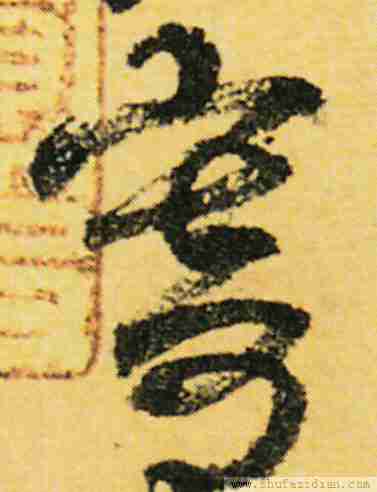 寄
www.shufazidian.com